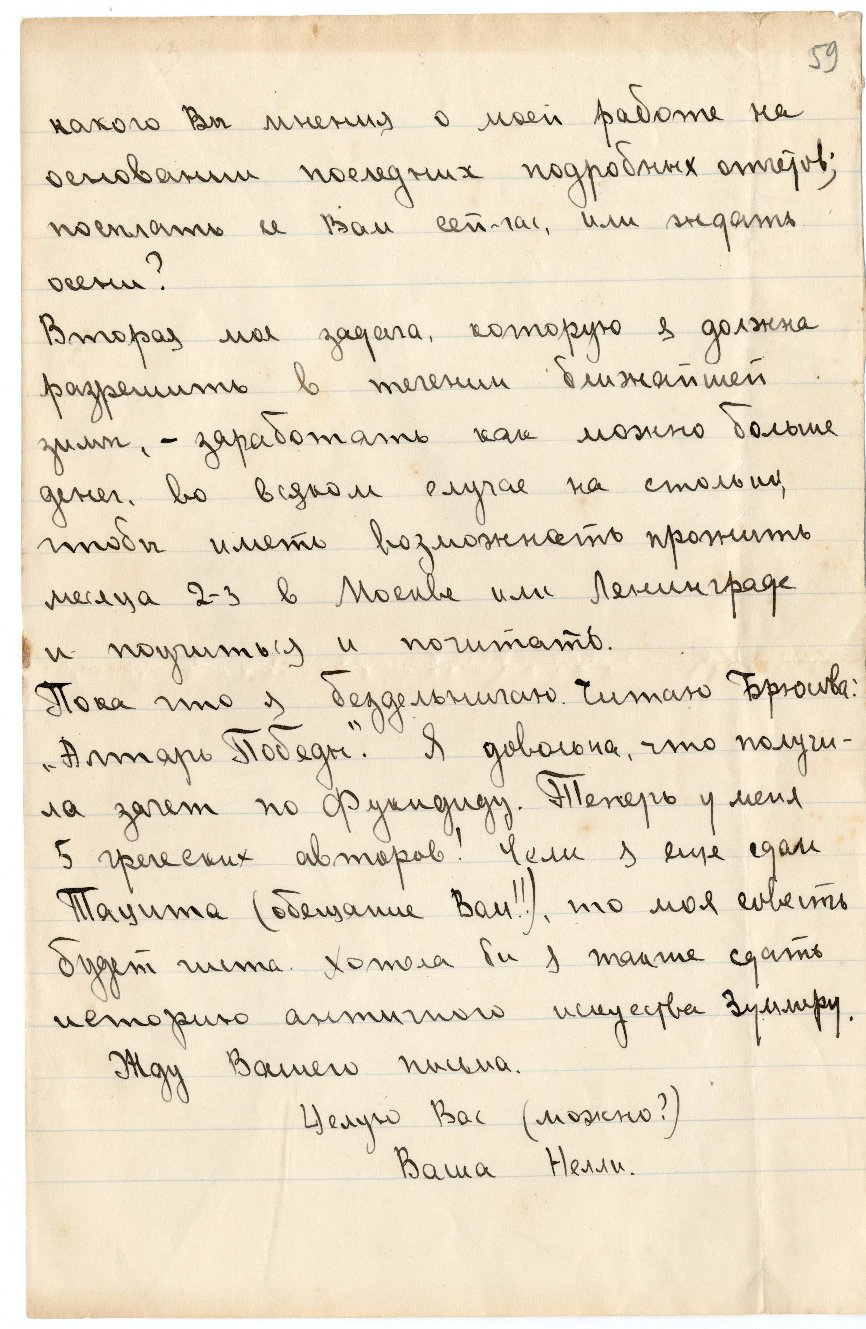 59
какого Вы мнения о моей работе на
основании последних подробных отчетов;
посылать ее Вам сей-час, или ждать
осени?
Вторая моя задача, которую я должна
разрешить в течении ближайшей
зимы, – заработать как можно больше
денег, во всяком случае на столько,
чтобы иметь возможность прожить
месяца 2-3 в Москве или Ленинграде
и поучиться и почитать.
Пока что я бездельничаю. Читаю Брюсова:
„Алтарь Победы". Я довольна, что получи-
ла зачет по Фукидиду. Теперь у меня
5 греческих авторов! Если я еще сдам
Тацита (обещание Вам!!), то моя совесть
будет чиста. Хотела бы я также сдать
историю античного искуества Зуммеру.
Жду Вашего письма.
Целую Вас (можно?)
Ваша Нелли.